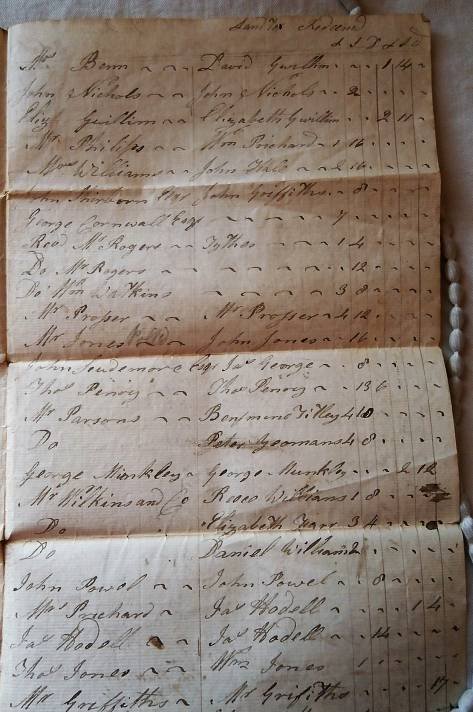 Land Tax
£ S D £ S D
Mr Benn David Gwillim 1 14
John Nichols John Nichols 2
Eliz Gwillim Elizabeth Gwillim 2 11
Mr Philips Wm Prichard 1 16
Mrs Williams John Hale 2 16
John Griffiths 8
George Cornwall Esqr 7
Revd Mr Rogers Tythes 1 4
Do Mr Rogers 12
Do Wm Watkins 3 8
Mr Prosser Mr Prosser 4 12
Mr Jones John Jones 16
John Scudemore Esqr Jas George 8
Thos Penry Thos Penry 13 6
Mr Parsons Benjmine Tilley 4 10
Do Peter Yeomans 4 8
George Munkley George Munkley 2 12
Mr Wilkins and Co Reece Williams 1 8
Do Elizabeth 3 4
Do Daniel Williams
John Powel John Powel 8
Mrs Prichard Jas Hodell 1 4
Jas Hodell Jas Hodell 14
Thos Jones Wm Jones 1
Mr Griffiths Mr Griffiths 17